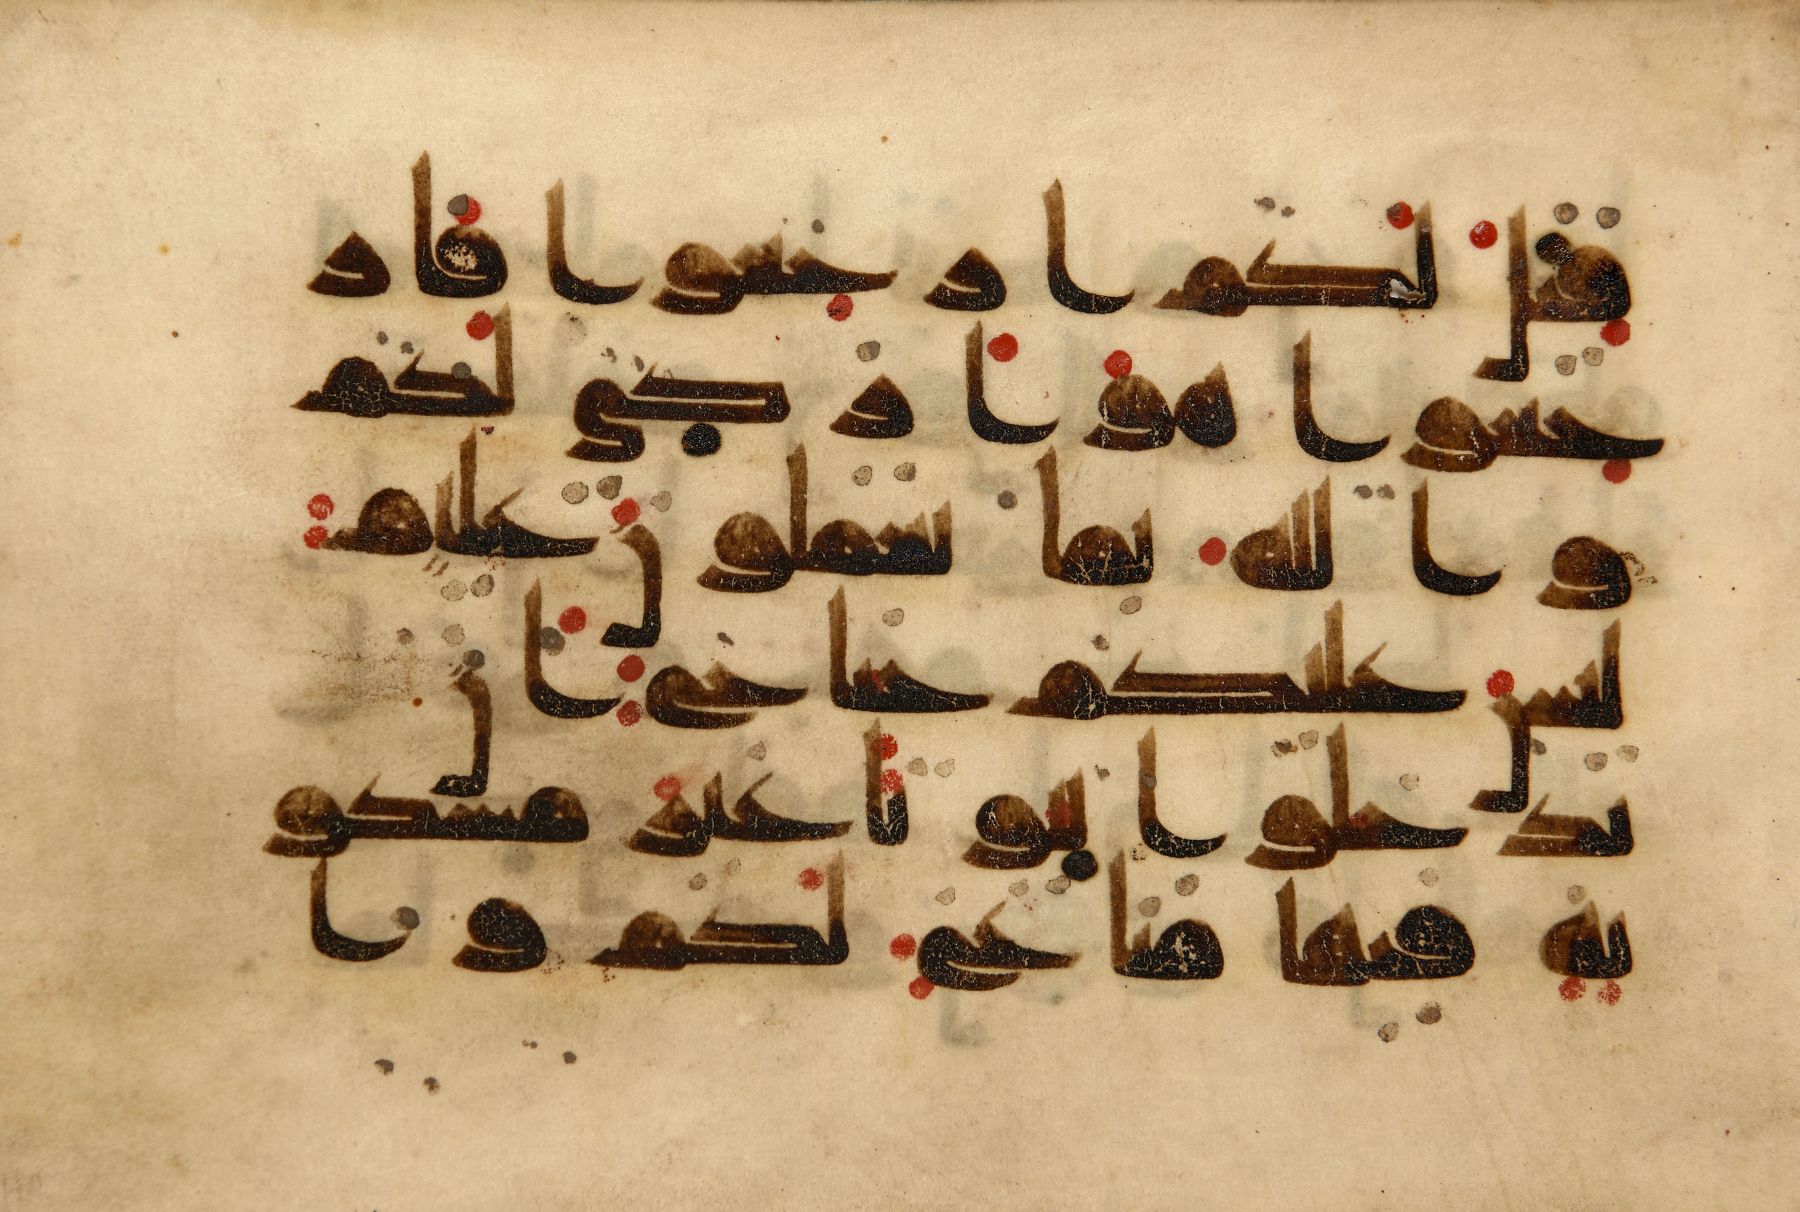 قيل لكم ارجعوا فار
جعوا هو ازكى لكم
والله بما تعملون عليم
ليس عليكم جناح ان
تدخلوا بيوتا غير مسكو
نة فيها متاع لكم وا